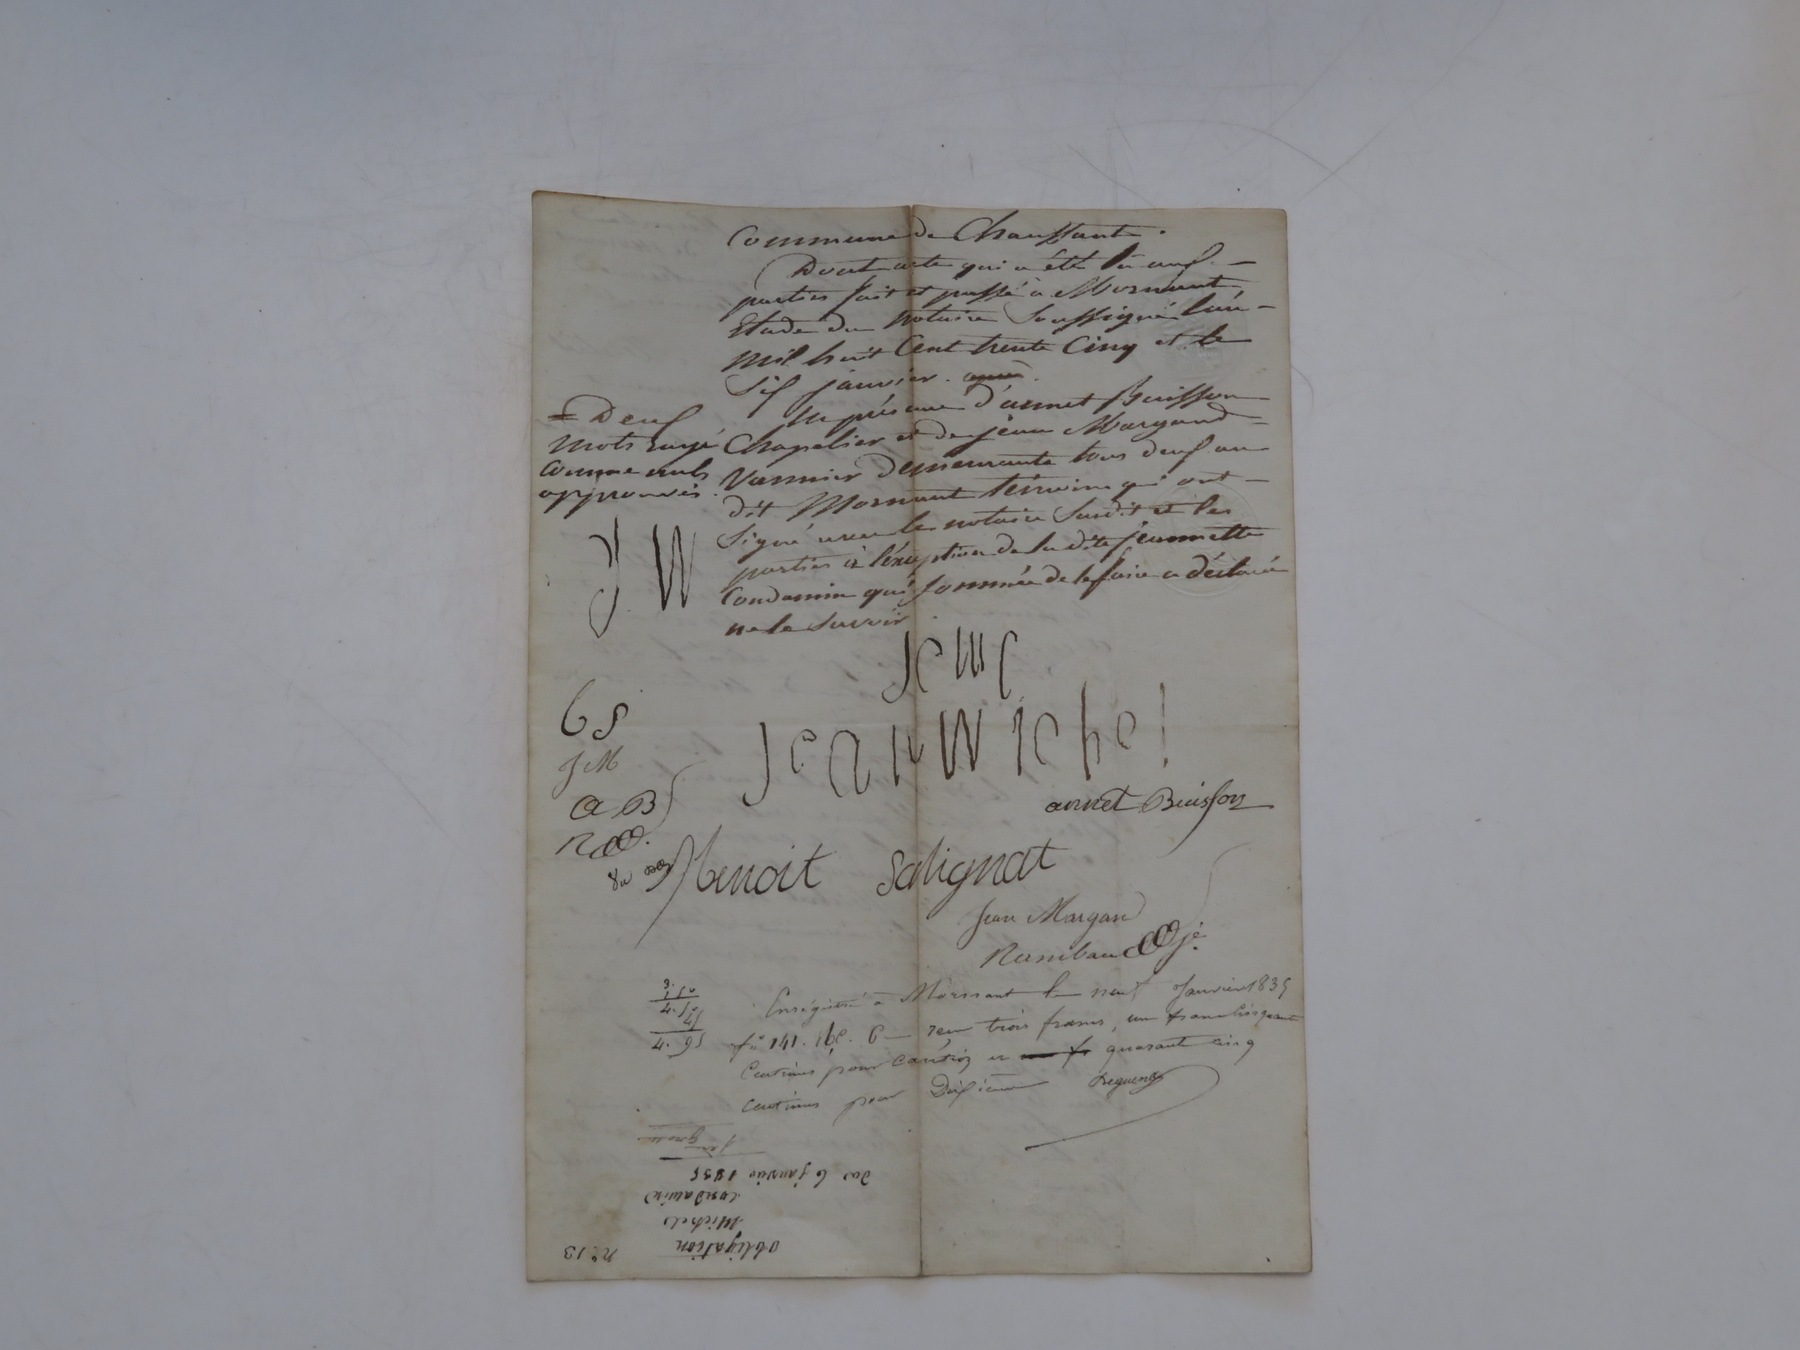 Commune de Chaussant.
Dont acte qui a été lu aux
parties fait et passé à Mornant
Etude du notaire Soussigné l'an
mil huit Cent trente Cinq et le
Six janvier.
En présence d'annet Buisson
Chapelier et de jean Margand
Vannier demeurants tous deux au
dit Mornant témoins qui ont
Signé avec le notaire Susdit et les
parties à l'éxception de la dite jeannette
Condamin qui Sommée de le faire a déclaré
ne le Savoir
Deux
mots rayé
Comme nuls
approuvés.
J M
Jean Michel
bS
JM
aB
annet Buisson
benoit Salignat
Jean Margand
Rambaud
Enrégistré à Mornant le neuf Janvier 1835
fo 141. reçu trois francs, un franc cinquante
Centimes pour caution et quarant cinq
centimes pour Dixieme
3.
4.
4. 95
1ère grosse
Du 6 janvier 1835
Condamin
Michel
Obligation
No. 13